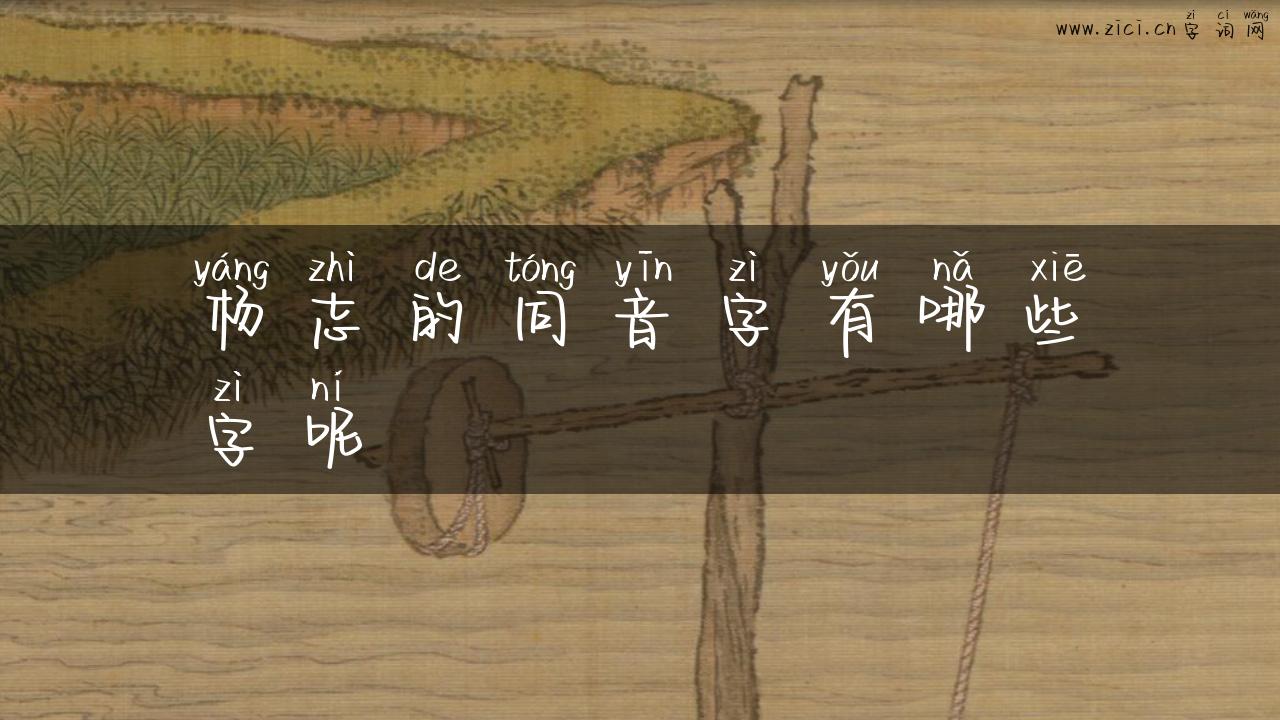 zì cí wǎng
www.zici.cn 字词网
yáng zhì de tóng yīn zì yǒu nǎ xiē
杨志的同音字有哪些
zì ní
字呢